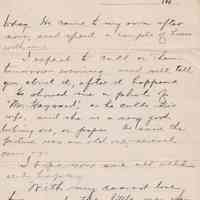 today. He came to my room after
and spent a couple of hours
with me.
I expect to call on them
tomorrow evening and will tell
you about it, after it happens
he showed me a photo of
"Mr. Hayward", as he calls his
wife, and she is a very good
looking on paper. He said the
picture was an old one, several
years ago.
I hope you are all well
and happy.
With my dearest love